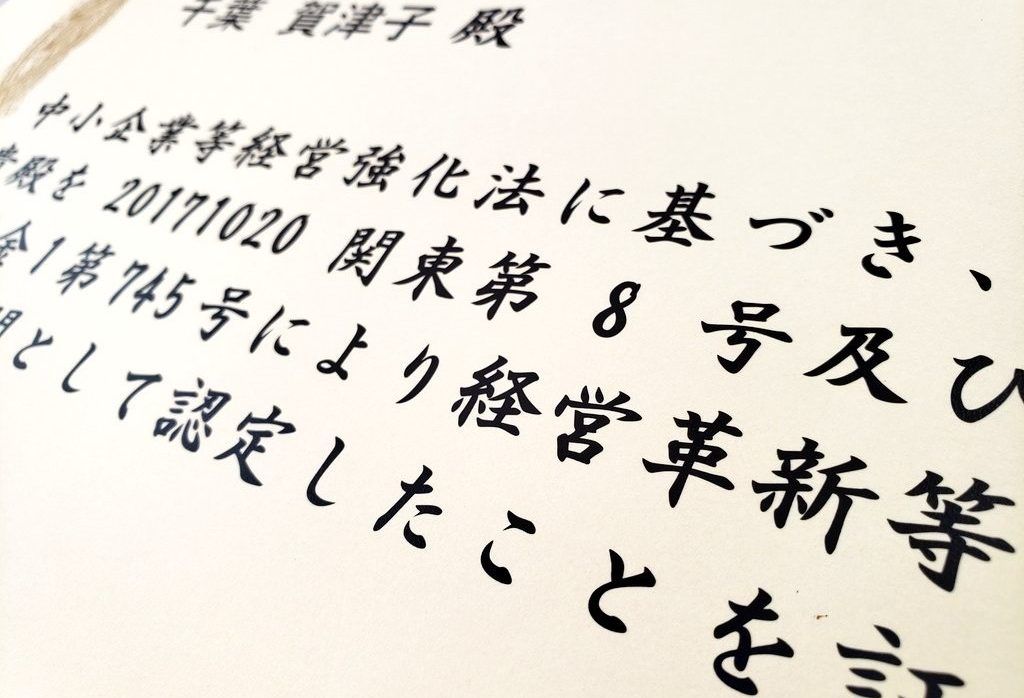 千葉 賀津子 殿
中小企業等経営強化法に基づき、
貴殿を 20171020 関東第 8 号及び
金1第745号により経営革新等
関として認定したことを